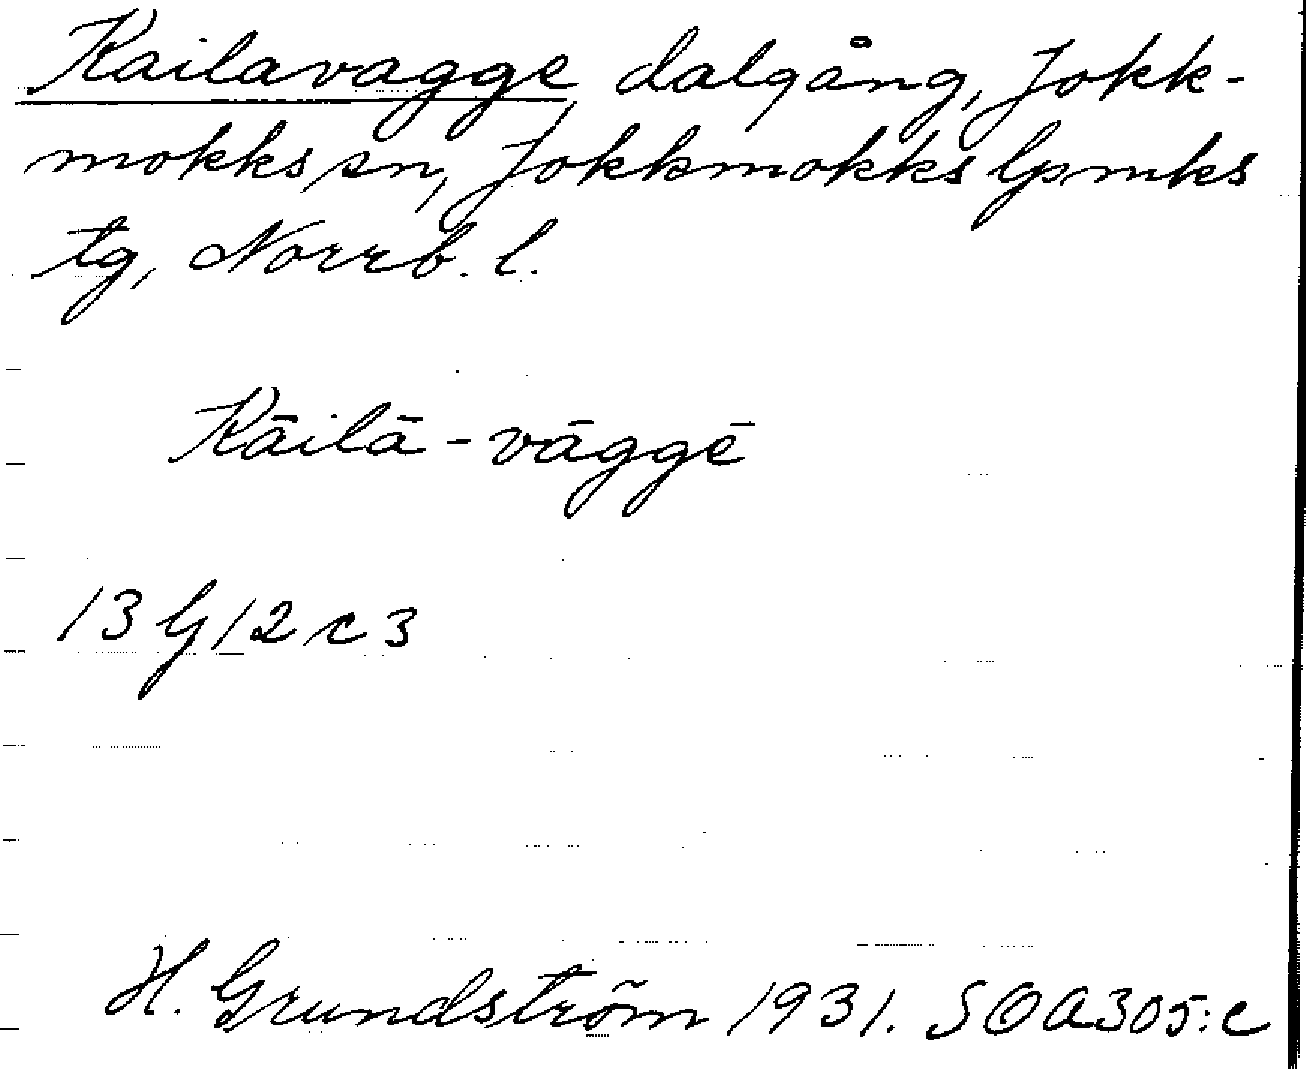 Kailavagge dalgång, Jokk-
mokks sn, Jokkmokks lpmks
tg, Norrb. l.
Kāilā-vāggē
13 G 12 c 3
H. Grundström 1931. SOA305:c